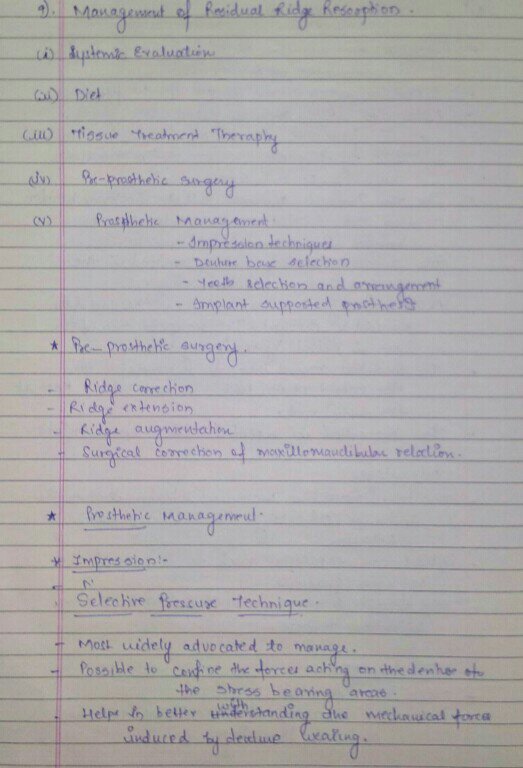 9). Management of Residual Ridge Resorption.
(i) Systemic Evaluation
(ii) Diet
(iii) Tissue Treatment Theraphy
(iv) Pre-prosthetic surgery
(v) Prosthetic Management.
- Impression techniques
- Denture base selection
- Teeth selection and arrangement
- Implant supported prosthesis
* Pre-prosthetic surgery.
- Ridge correction
- Ridge extension
- Ridge augmentation
- Surgical correction of maxillomandibular relation.
* Prosthetic Management.
* Impression:-
Selective Pressure Technique.
- Most widely advocated to manage.
- Possible to confine the forces acting on the denture to
the stress bearing areas.
- Helps in better withstanding the mechanical forces
induced by denture wearing.